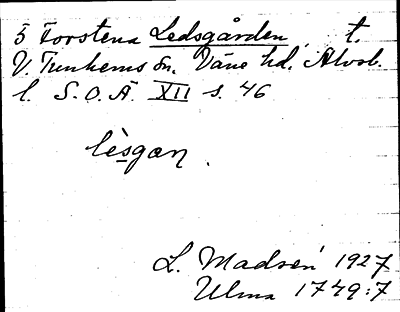 3 Forstena Ledsgården, t.
V. Tunhems sn. Väne hd. Älvsb.
l. S.O.Ä. XII s. 46
lèsgan.
L. Madsén 1927
Ulma 1749:7